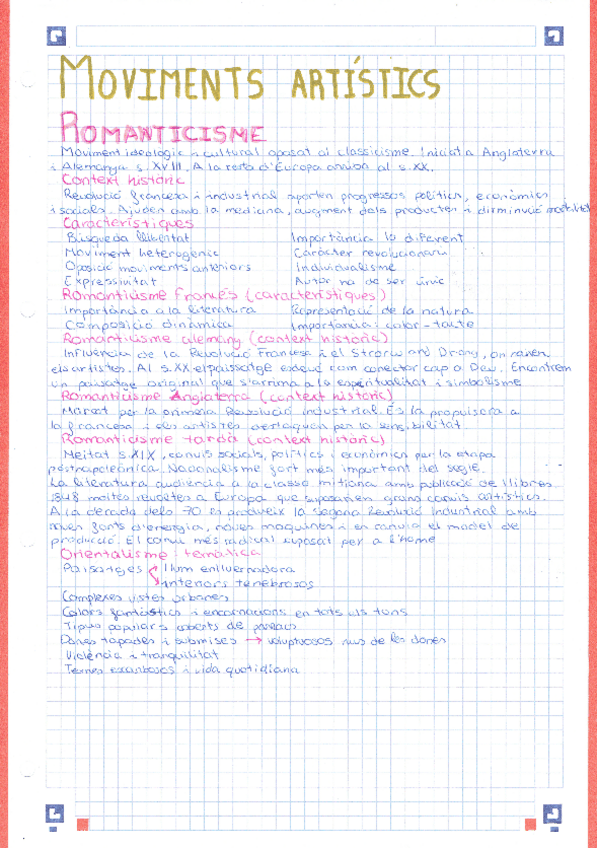 MOVIMENTS ARTÍSTICS
ROMANTICISME
Moviment ideologic i cultural oposat al classicisme. Iniciat a Anglaterra
i Alemanya s. XVIII. A la resta d'Europa arriba al s. XX.
Context històric
Revolució francesa i industrial aporten progressos polítics, econòmics
i socials. Ajuden amb la medicina, augment dels productes i disminució mortalitat
Característiques
Búsqueda llibertat Importància lo diferent
Moviment heterogenic Caràcter revolucionari
Oposició moviments anteriors Individualisme
Expressivitat Autor ha de ser únic
Romanticisme francés (característiques)
Importància a la literatura Representació de la natura
Composició dinàmica Importància: color-tacte
Romanticisme alemany (context històric)
Influència de la Revolució Francesa i el and
els artistes. Al s. XX el paissatge esdevé com conector cap a Deu. Encontrem
un paisatge original que s'arrima a la espiritualitat i simbolisme
Romanticisme Anglaterra (context històric)
Marcat per la primera Revolució industrial. És la propulsora a
la francesa i els artistes destaquen per la sensibilitat
Romanticisme tardà (context històric)
Meitat s. XIX, canvis socials, polítics i econòmics per la etapa
postnapoleònica. Nacionalisme fort més important del segle.
La literatura audiencia a la classe mitjana amb publicació de llibres
1848 moltes revoltes a Europa que suposarien grans canvis artístics.
A la decada dels 70 es produeix la Segona Revolució Industrial amb
noves fonts d'energia, noves maquines i en canvia el model de
producció. El canvi més radical suposat per a l'home
Orientalisme: temàtica
Paisatges llum enlluernadora
interiors tenebrosos
Complexes vistes urbanes
Colors fantàstics i encarnacions en tots els tons
Tipus populars coberts de
Dones tapades i submises → voluptuosos nus de les dones
Violència i tranquilitat
Temes escabrosos i vida quotidiana